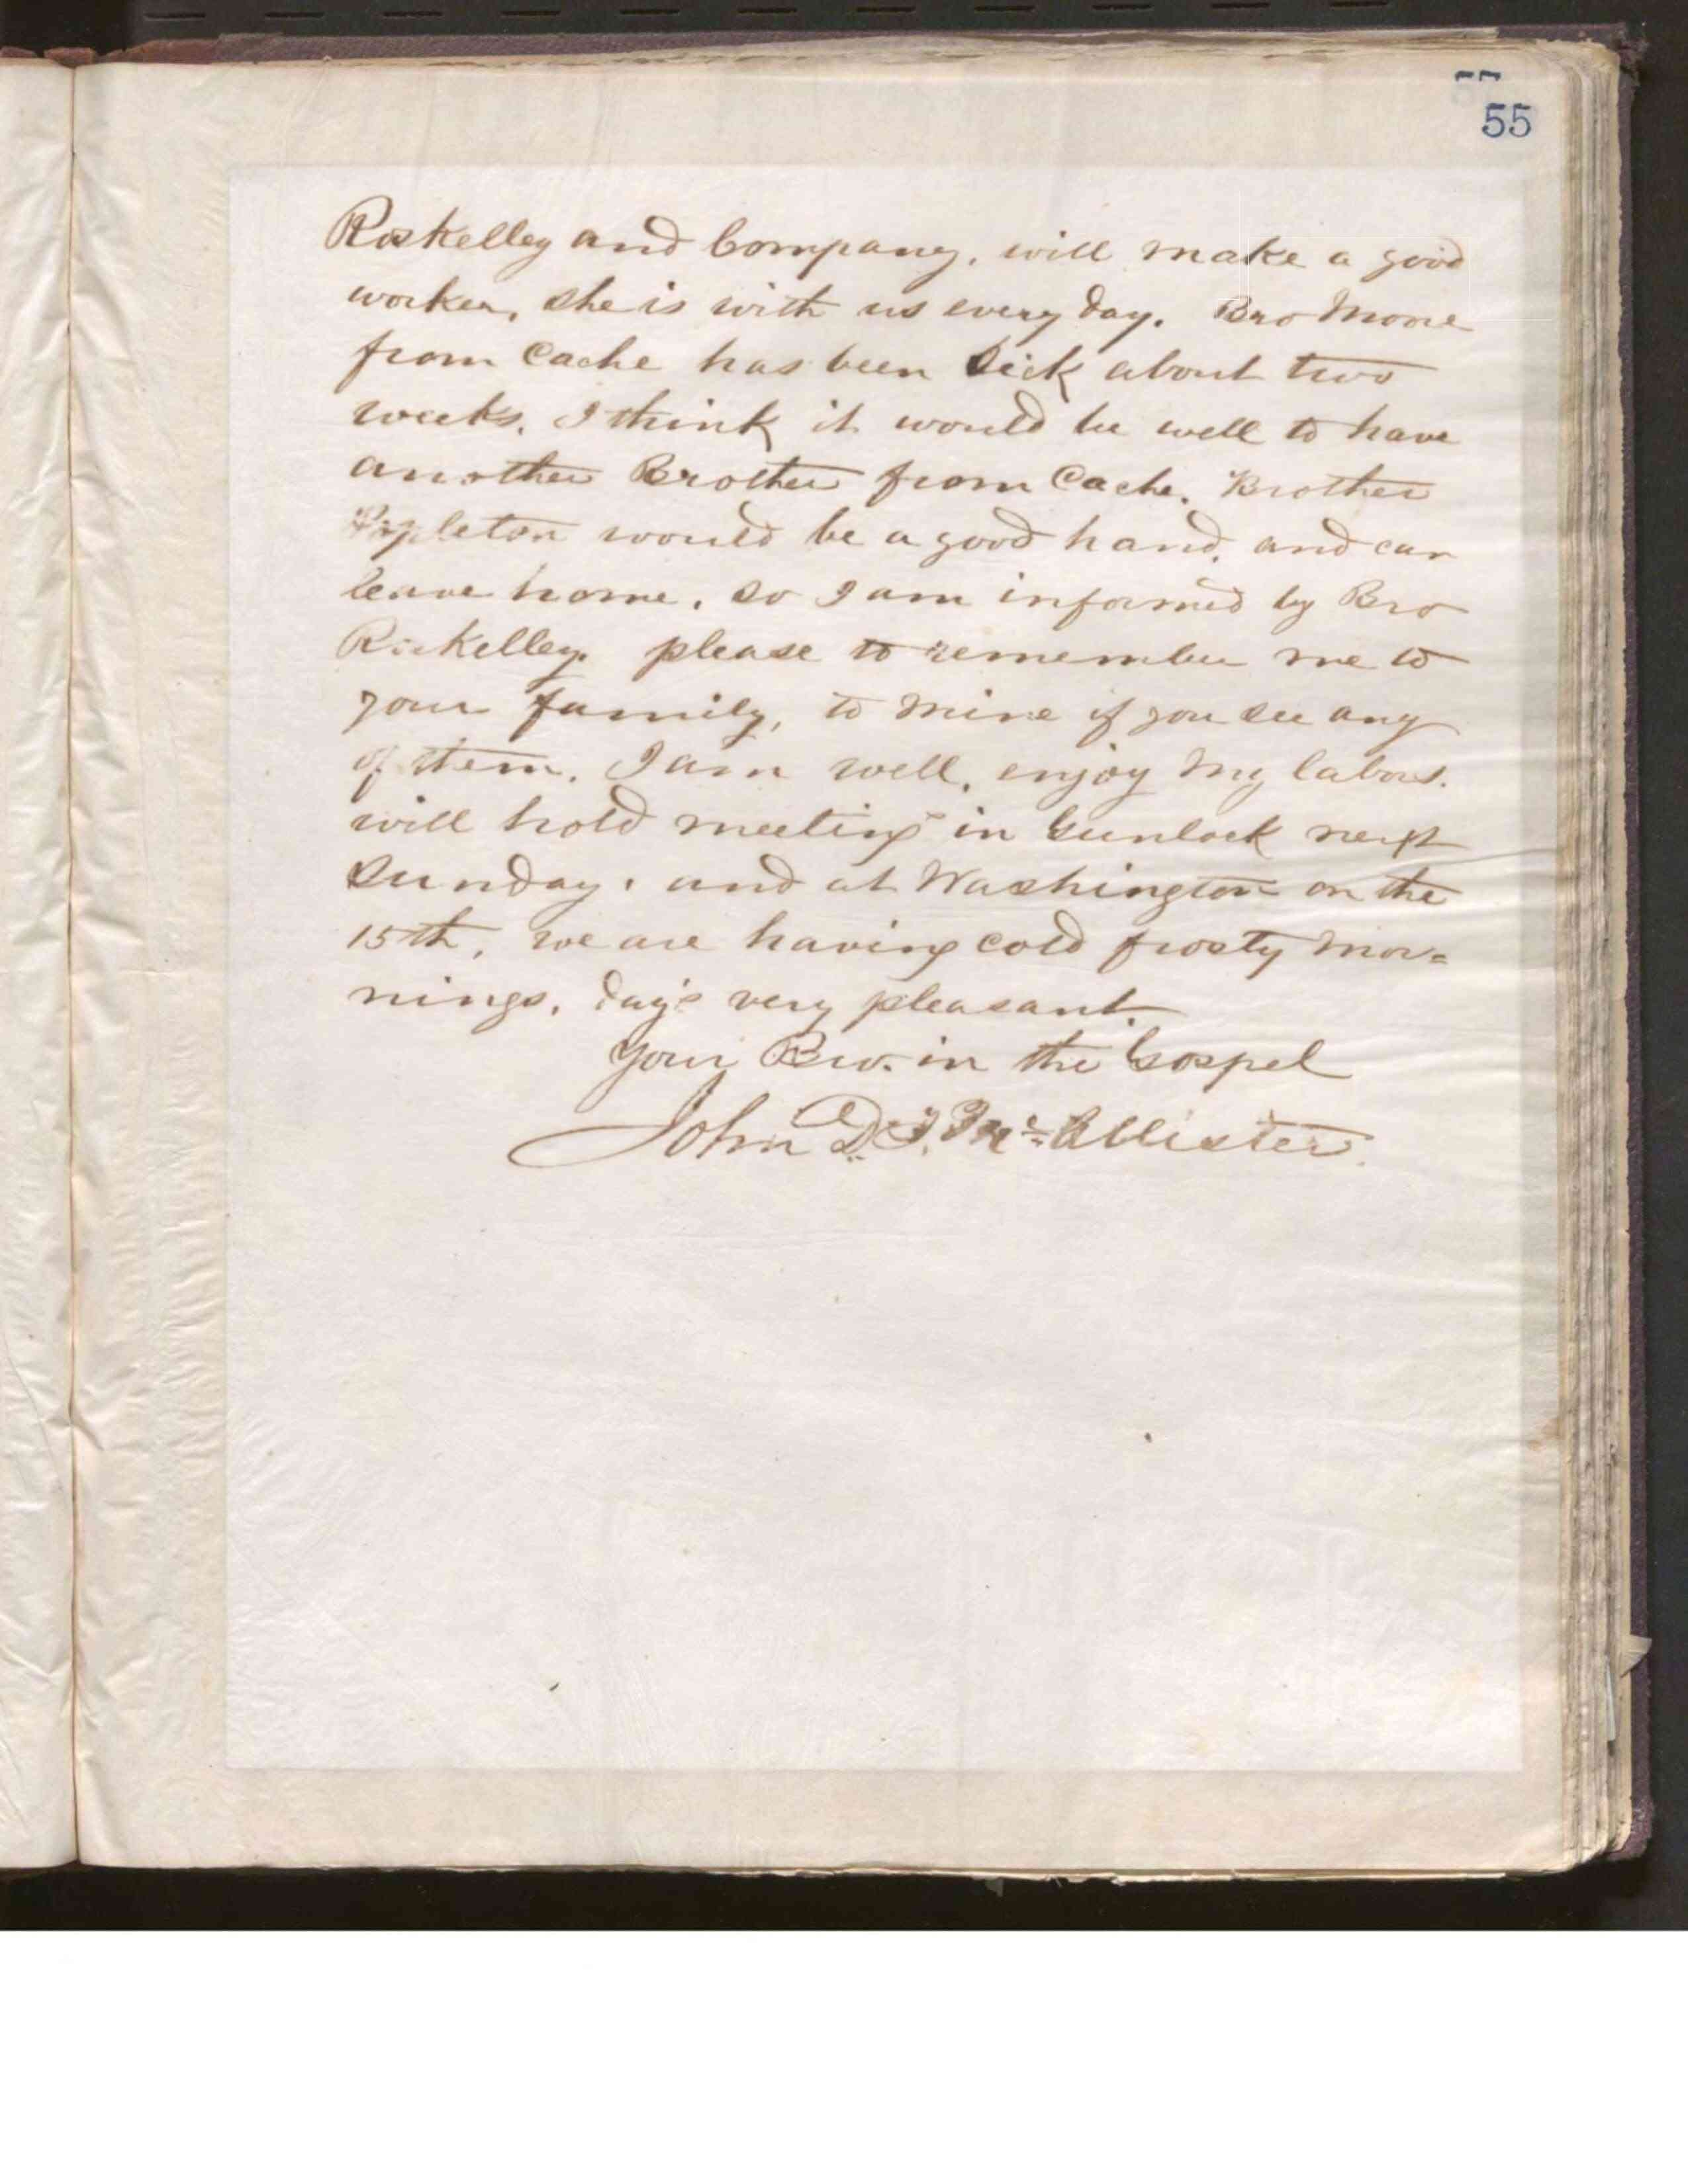 55
Roskelley and Company, will make a good
worker, she is with us every day. Bro Moore
from Cache has been sick about two
weeks. I think it would be well to have
another Brother from Cache. Brother
would be a good hand, and can
leave home, so I am informed by Bro
Roskelley. please to remember me to
your family, to mine if you see any
of them. I am well, enjoy my labors.
will hold meeting in Gunlock next
Sunday, and at Washington on the
15th, we are having cold frosty mor=
nings, day's very pleasant.
Your Bro. in the Gospel
John D. T. McAllister